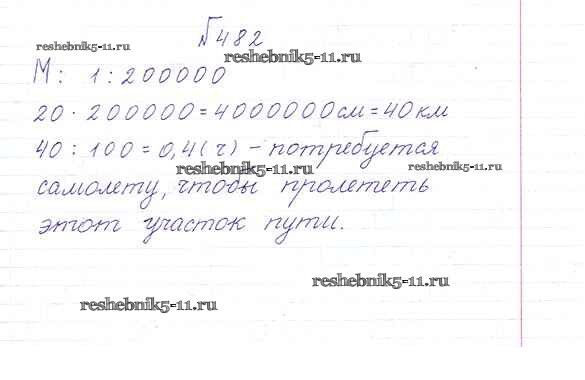 №482
reshebnik5-11.ru
reshebnik5-11.ru
М: 1:200000
20·200000=4000000см=40км
40:100=0,4(ч) - потребуется
reshebnik5-11.ru
reshebnik5-11.ru
самолету, чтобы пролететь
этот участок пути.
reshebnik5-11.ru
reshebnik5-11.ru